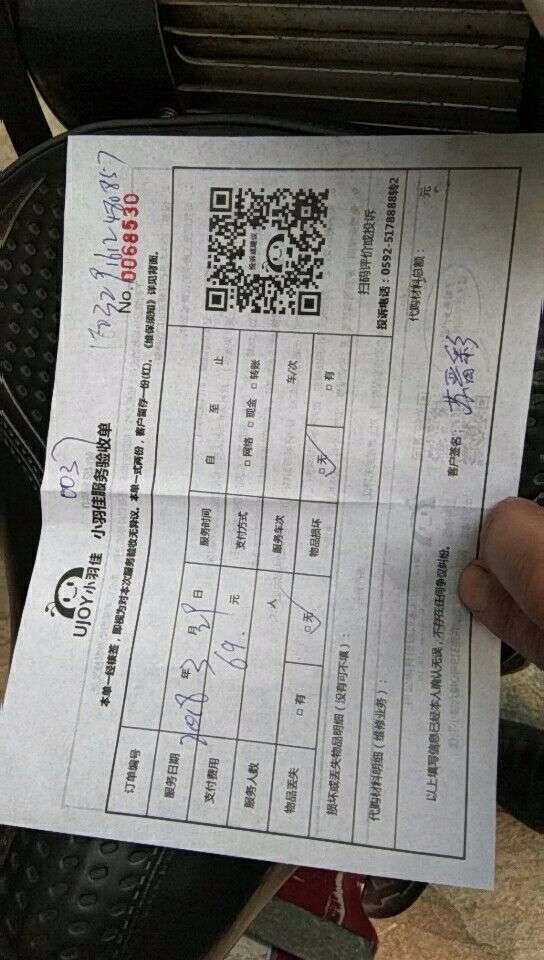 0037
UJOY小羽佳 小羽佳服务验收单
No. 0068530
本单一经接签，即视为对本次服务验收无异议。本单一式两份，客户留存一份(红)。《维保须知》详见背面。
订单编号
服务日期 2018年3月29日 服务时间 自 至 止
支付费用 69. 元 支付方式 □网络 □现金 □转账
服务人数 人 服务车次 车/次
物品丢失 □有 □无 物品损坏 □无 □有
扫码评价或投诉
投诉电话：0592-5178888转2
损坏或丢失物品明细（没有可不填）：
代购材料明细（维修业务）： 代购材料总额： 元
以上填写信息已经本人确认无误，不存在任何争议纠纷。 客户签名：